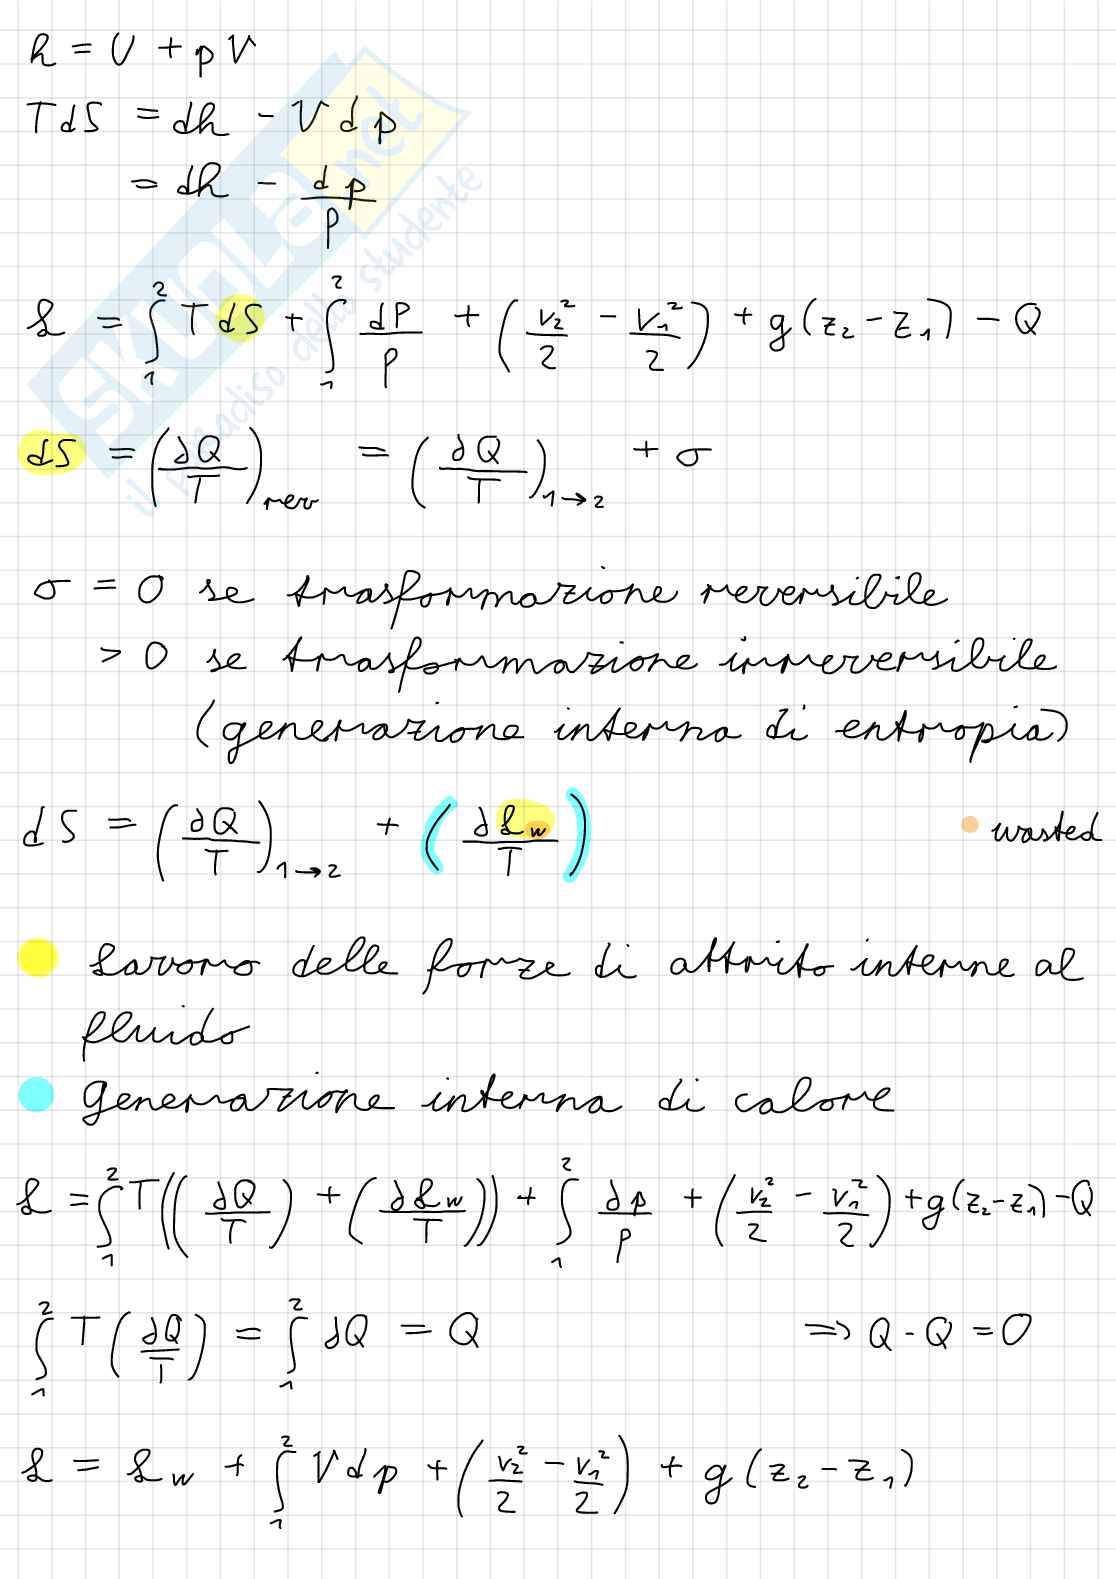 h = U + pV
TdS = dh - Vdp
= dh - dp/ρ
L = ∫₁² TdS + ∫₁² dP/ρ + (v₂²/2 - v₁²/2) + g(z₂ - z₁) - Q
dS = (∂Q/T)rev = (∂Q/T)1→2 + σ
σ = 0 se trasformazione reversibile
> 0 se trasformazione irreversibile
(generazione interna di entropia)
dS = (∂Q/T)1→2 + (∂Lw/T) wasted
Lavoro delle forze di attrito interne al
fluido
Generazione interna di calore
L = ∫₁² T((∂Q/T) + (∂Lw/T)) + ∫₁² ∂p/ρ + (v₂²/2 - v₁²/2) + g(z₂-z₁) - Q
∫₁² T(∂Q/T) = ∫₁² ∂Q = Q ⇒ Q - Q = 0
L = Lw + ∫₁² Vdp + (v₂²/2 - v₁²/2) + g(z₂ - z₁)
SKUOLA.net
il paradiso dello studente